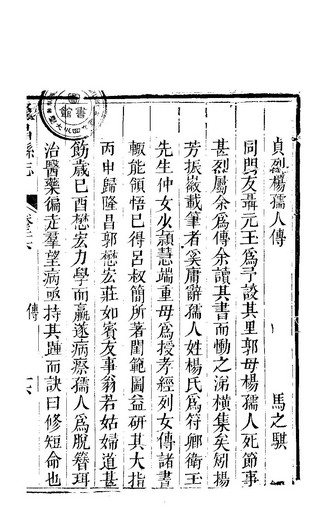 貞烈楊孺人傳 馬之騏
同門友聶元王爲予談其里郭母楊孺人死節事
甚烈屬余爲傳余讀其書而慟之涕橫集矣矧揚
芳振藏載筆者奚庸辭孺人姓楊氏爲符卿衛玉
先生仲女少頴慧端重母爲授孝經列女傳諸書
輒能領悟巳得呂叔簡所著閨範圖益硏其大指
丙申歸隆昌郭懋宏莊如賓友事翁若姑婦道甚
飭歲己酉懋宏力學而羸遂病瘵孺人爲脫簪珥
治醫藥徧走羣望病亟持其踵而訣曰修短命也
隆昌縣志 卷三六 傳